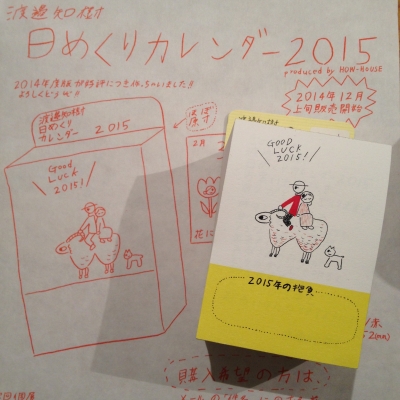 渡邉知樹
日めくりカレンダー2015
produced by HOW-HOUSE
2014年度版が好評につき作っちゃいました!!
よろしくどうぞ!!
2014年12月
上旬販売開始
渡邉知樹
日めくり
カレンダー 2015
ほぼ
原寸
GOOD
LUCK
2015!
2月
花に
渡邉知樹
GOOD
LUCK
2015!
2015年の抱負
購入希望の方は、